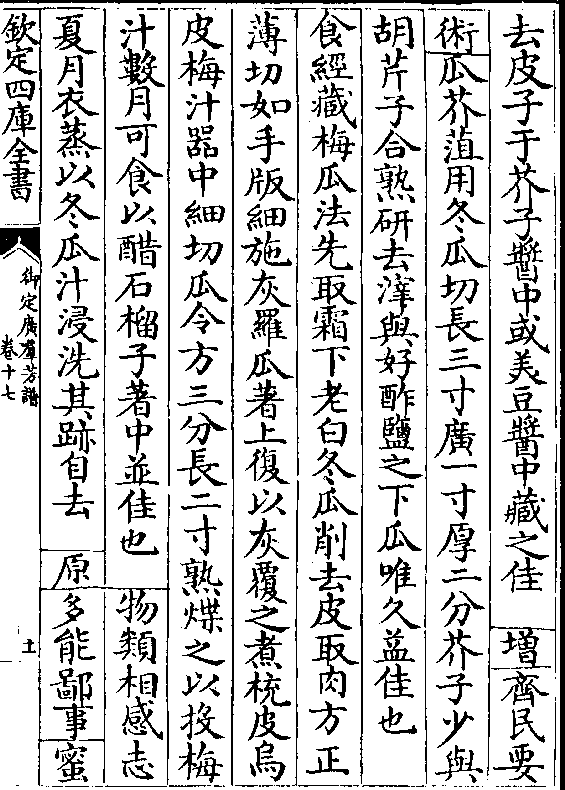 去皮子于芥子醬中或美豆醬中藏之佳 增 齊民要
術 瓜芥菹用冬瓜切長三寸廣一寸厚二分芥子少與
胡芹子合熟研去滓與好酢鹽之下瓜唯久益佳也
食經藏梅瓜法先取霜下老白冬瓜削去皮取肉方正
薄切如手版細施灰羅瓜著上復以灰覆之煮杬皮烏
皮梅汁器中細切瓜令方三分長二寸熟煠之以投梅
汁數月可食以醋石榴子著中並佳也 物類相感志
夏月衣蒸以冬瓜汁浸洗其跡自去 原 多能鄙事 蜜
欽定四庫全書
御定廣羣芳譜
卷十七
十一